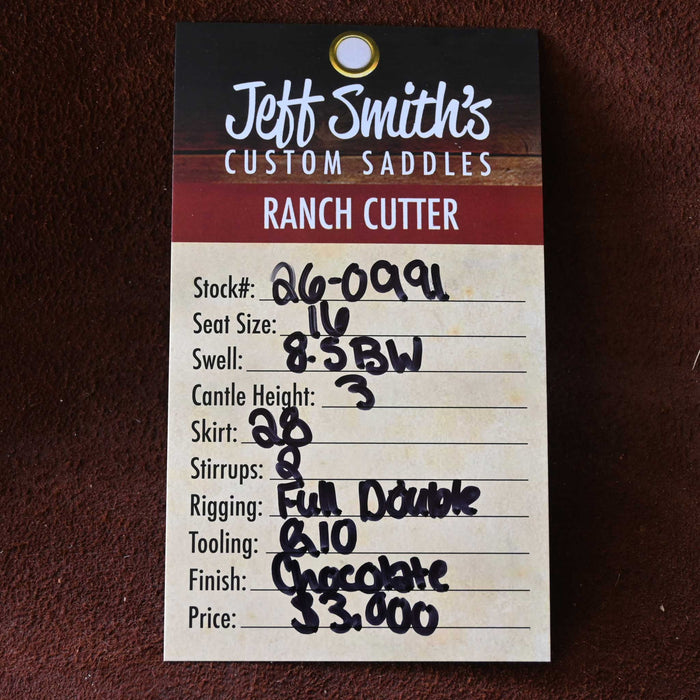 Jeff Smith's
CUSTOM SADDLES
RANCH CUTTER
Stock#: 26-0991
Seat Size: 16
Swell: 8.5 BW
Cantle Height: 3
Skirt: 28
Stirrups: 2
Rigging: Full Double
Tooling:
Finish: Chocolate
Price: $3,000